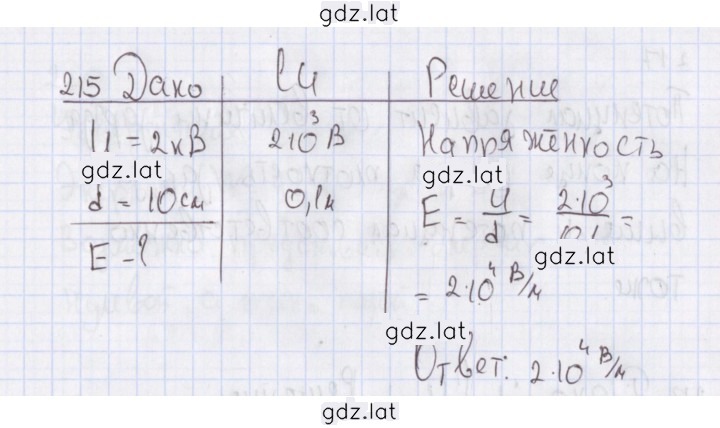 gdz.lat
215 Дано СИ Решение
U = 2кВ 2·10³ В Напряжённость
gdz.lat gdz.lat
d = 10см 0,1м E = U/d = 2·10³/0,1 =
E - ? gdz.lat
= 2·10⁴ В/м
gdz.lat
Ответ: 2·10⁴ В/м
gdz.lat